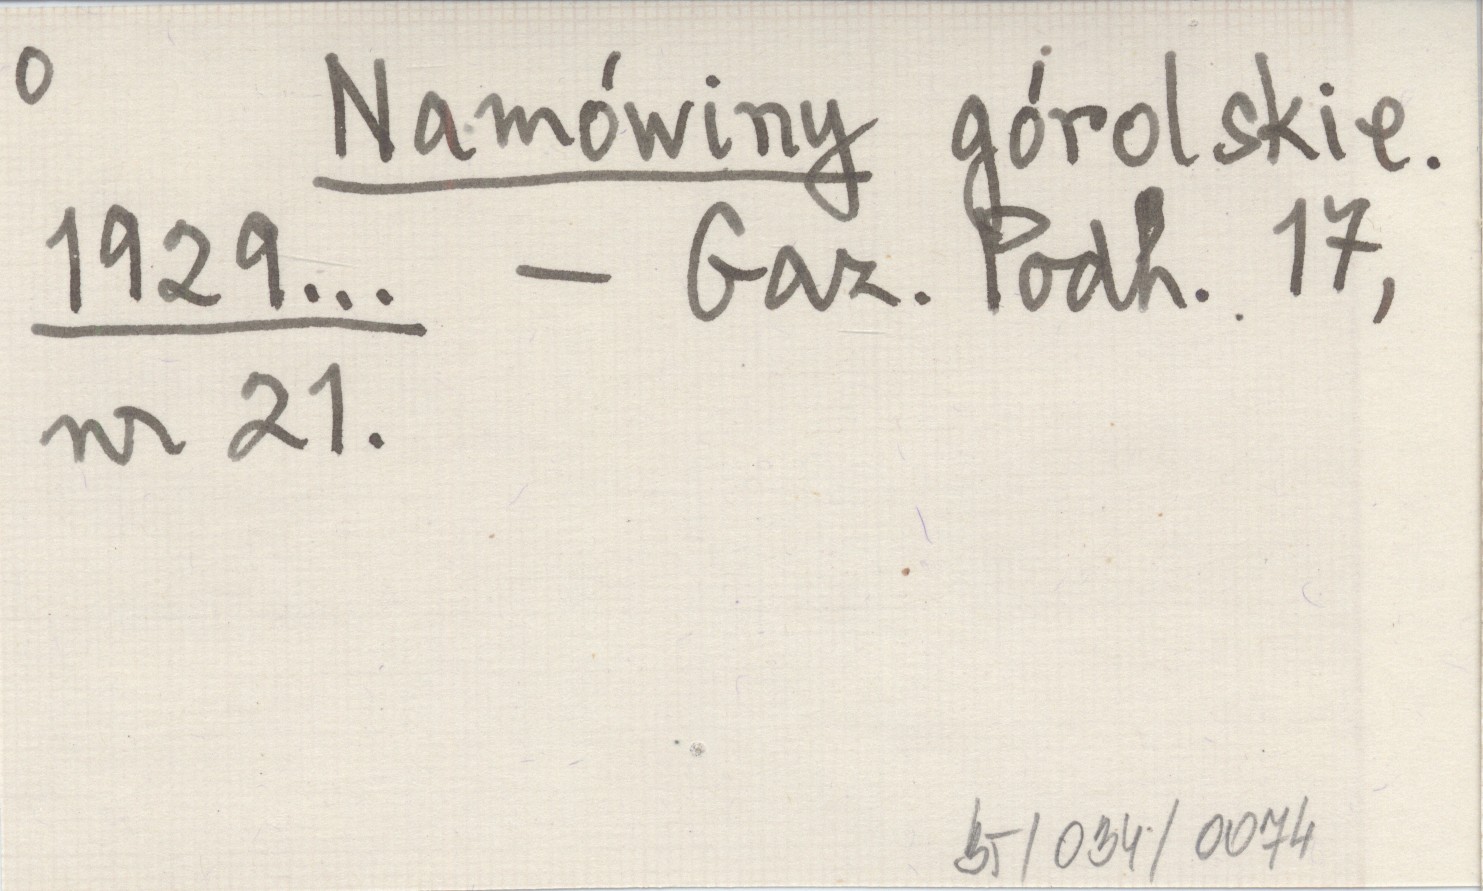 o Namówiny górolskie.
1929... — Gaz. Podh. 17,
nr 21.
35/034/0074